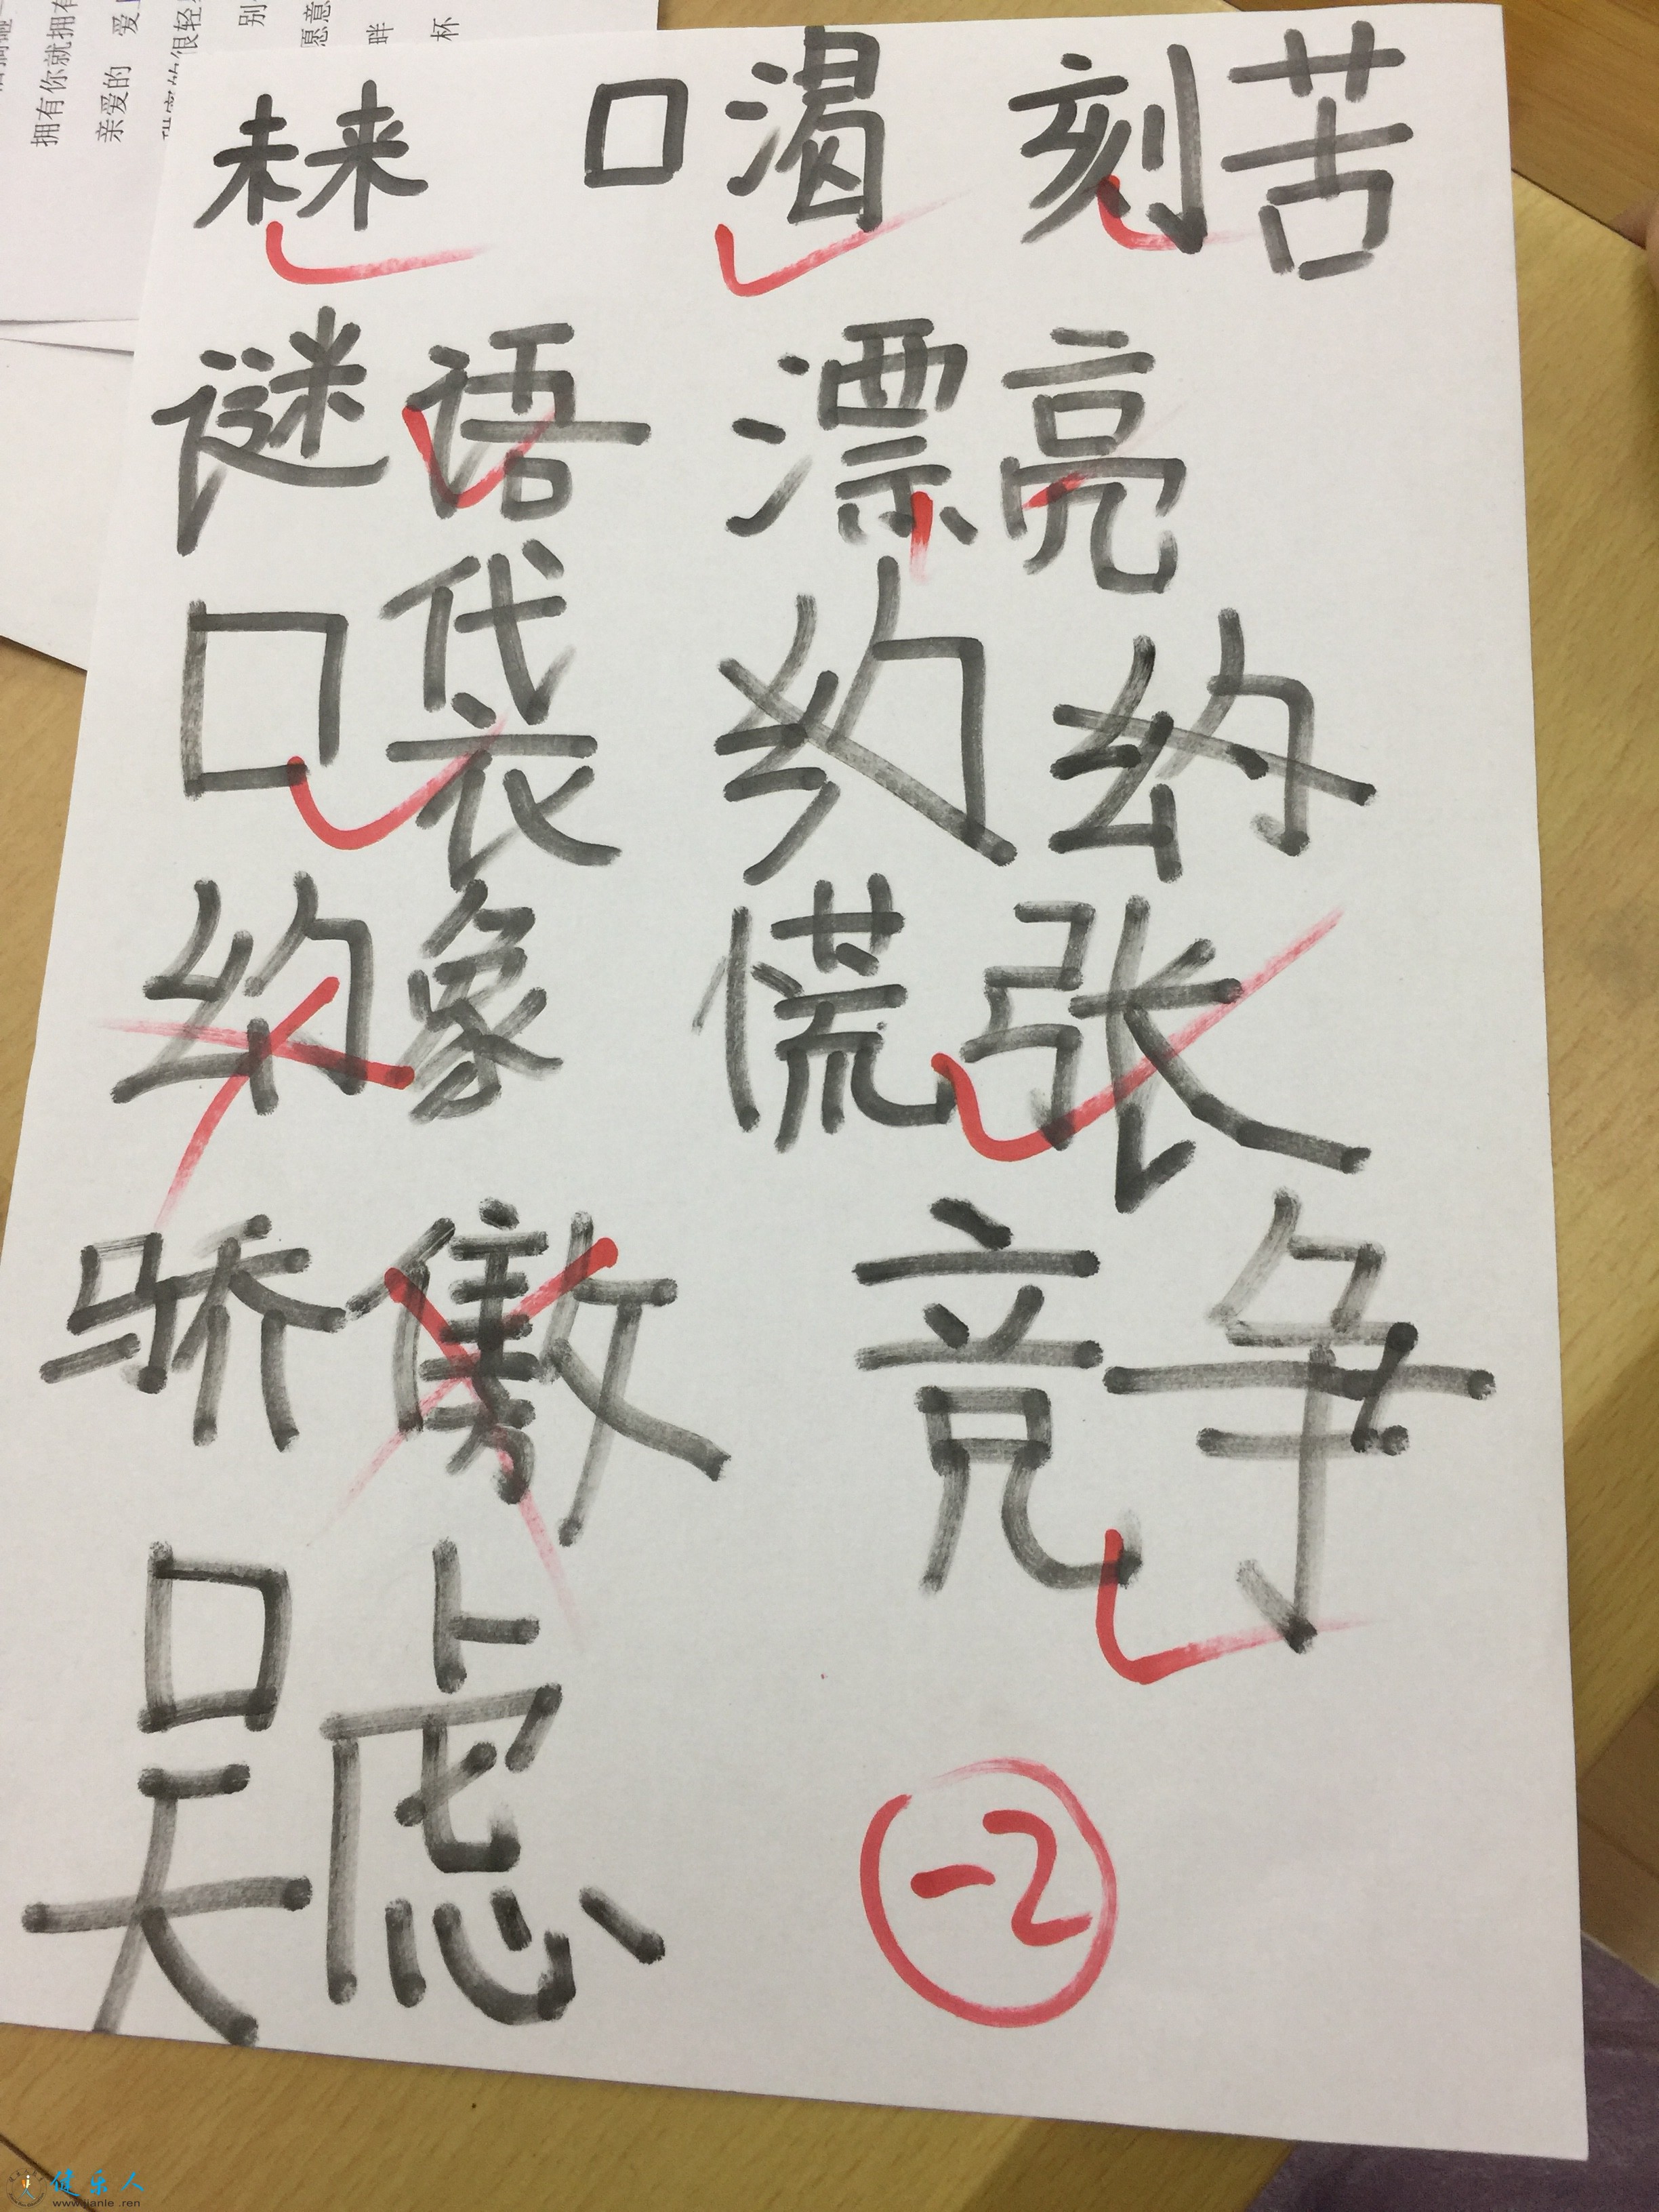 拥有你就拥有
亲爱的 爱上
别
愿意
畔
杯
未来 口渴 刻苦
谜语 漂亮
口袋
象 慌张
骄 竞争
吴 虑
-2
健乐人
www.jianle.ren